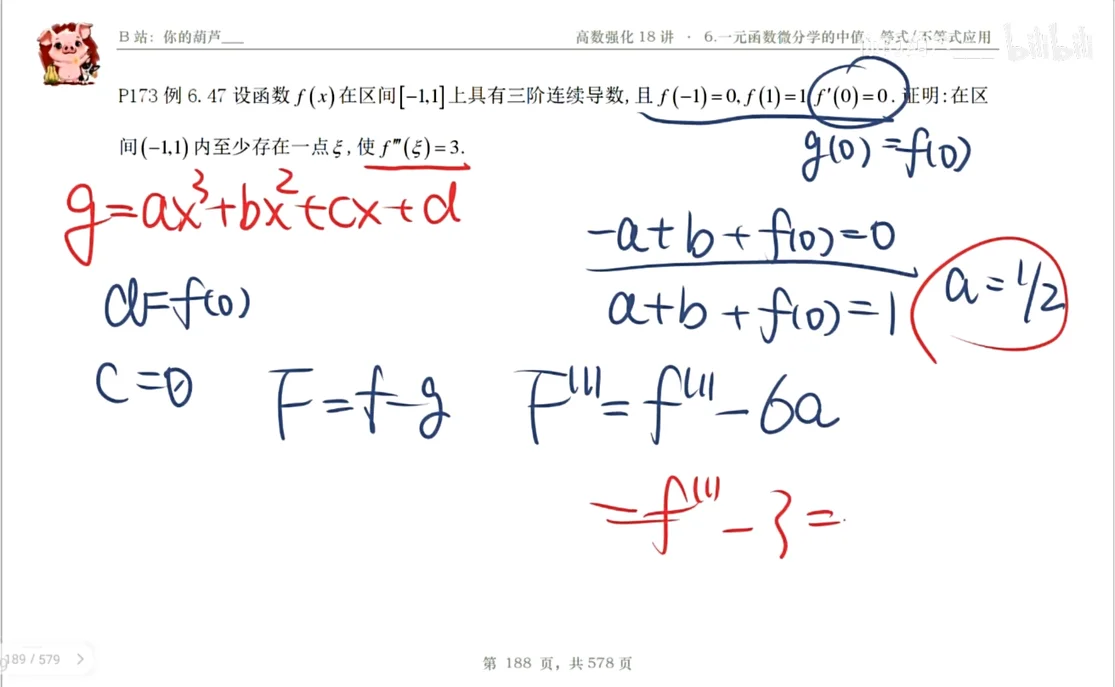 B站：你的葫芦___
高数强化18讲 · 6.一元函数微分学的中值、等式/不等式应用
bilibili
P173 例 6.47 设函数 f(x) 在区间[−1,1]上具有三阶连续导数,且 f(−1)=0,f(1)=1,f′(0)=0. 证明:在区
间(−1,1)内至少存在一点ξ,使 f‴(ξ)=3.
g(0)=f(0)
g=ax³+bx²+cx+d
-a+b+f(0)=0
d=f(0)
a+b+f(0)=1
a=1/2
c=0
F=f-g
F'''=f'''-6a
=f'''-3=
189 / 579 >
第 188 页，共 578 页